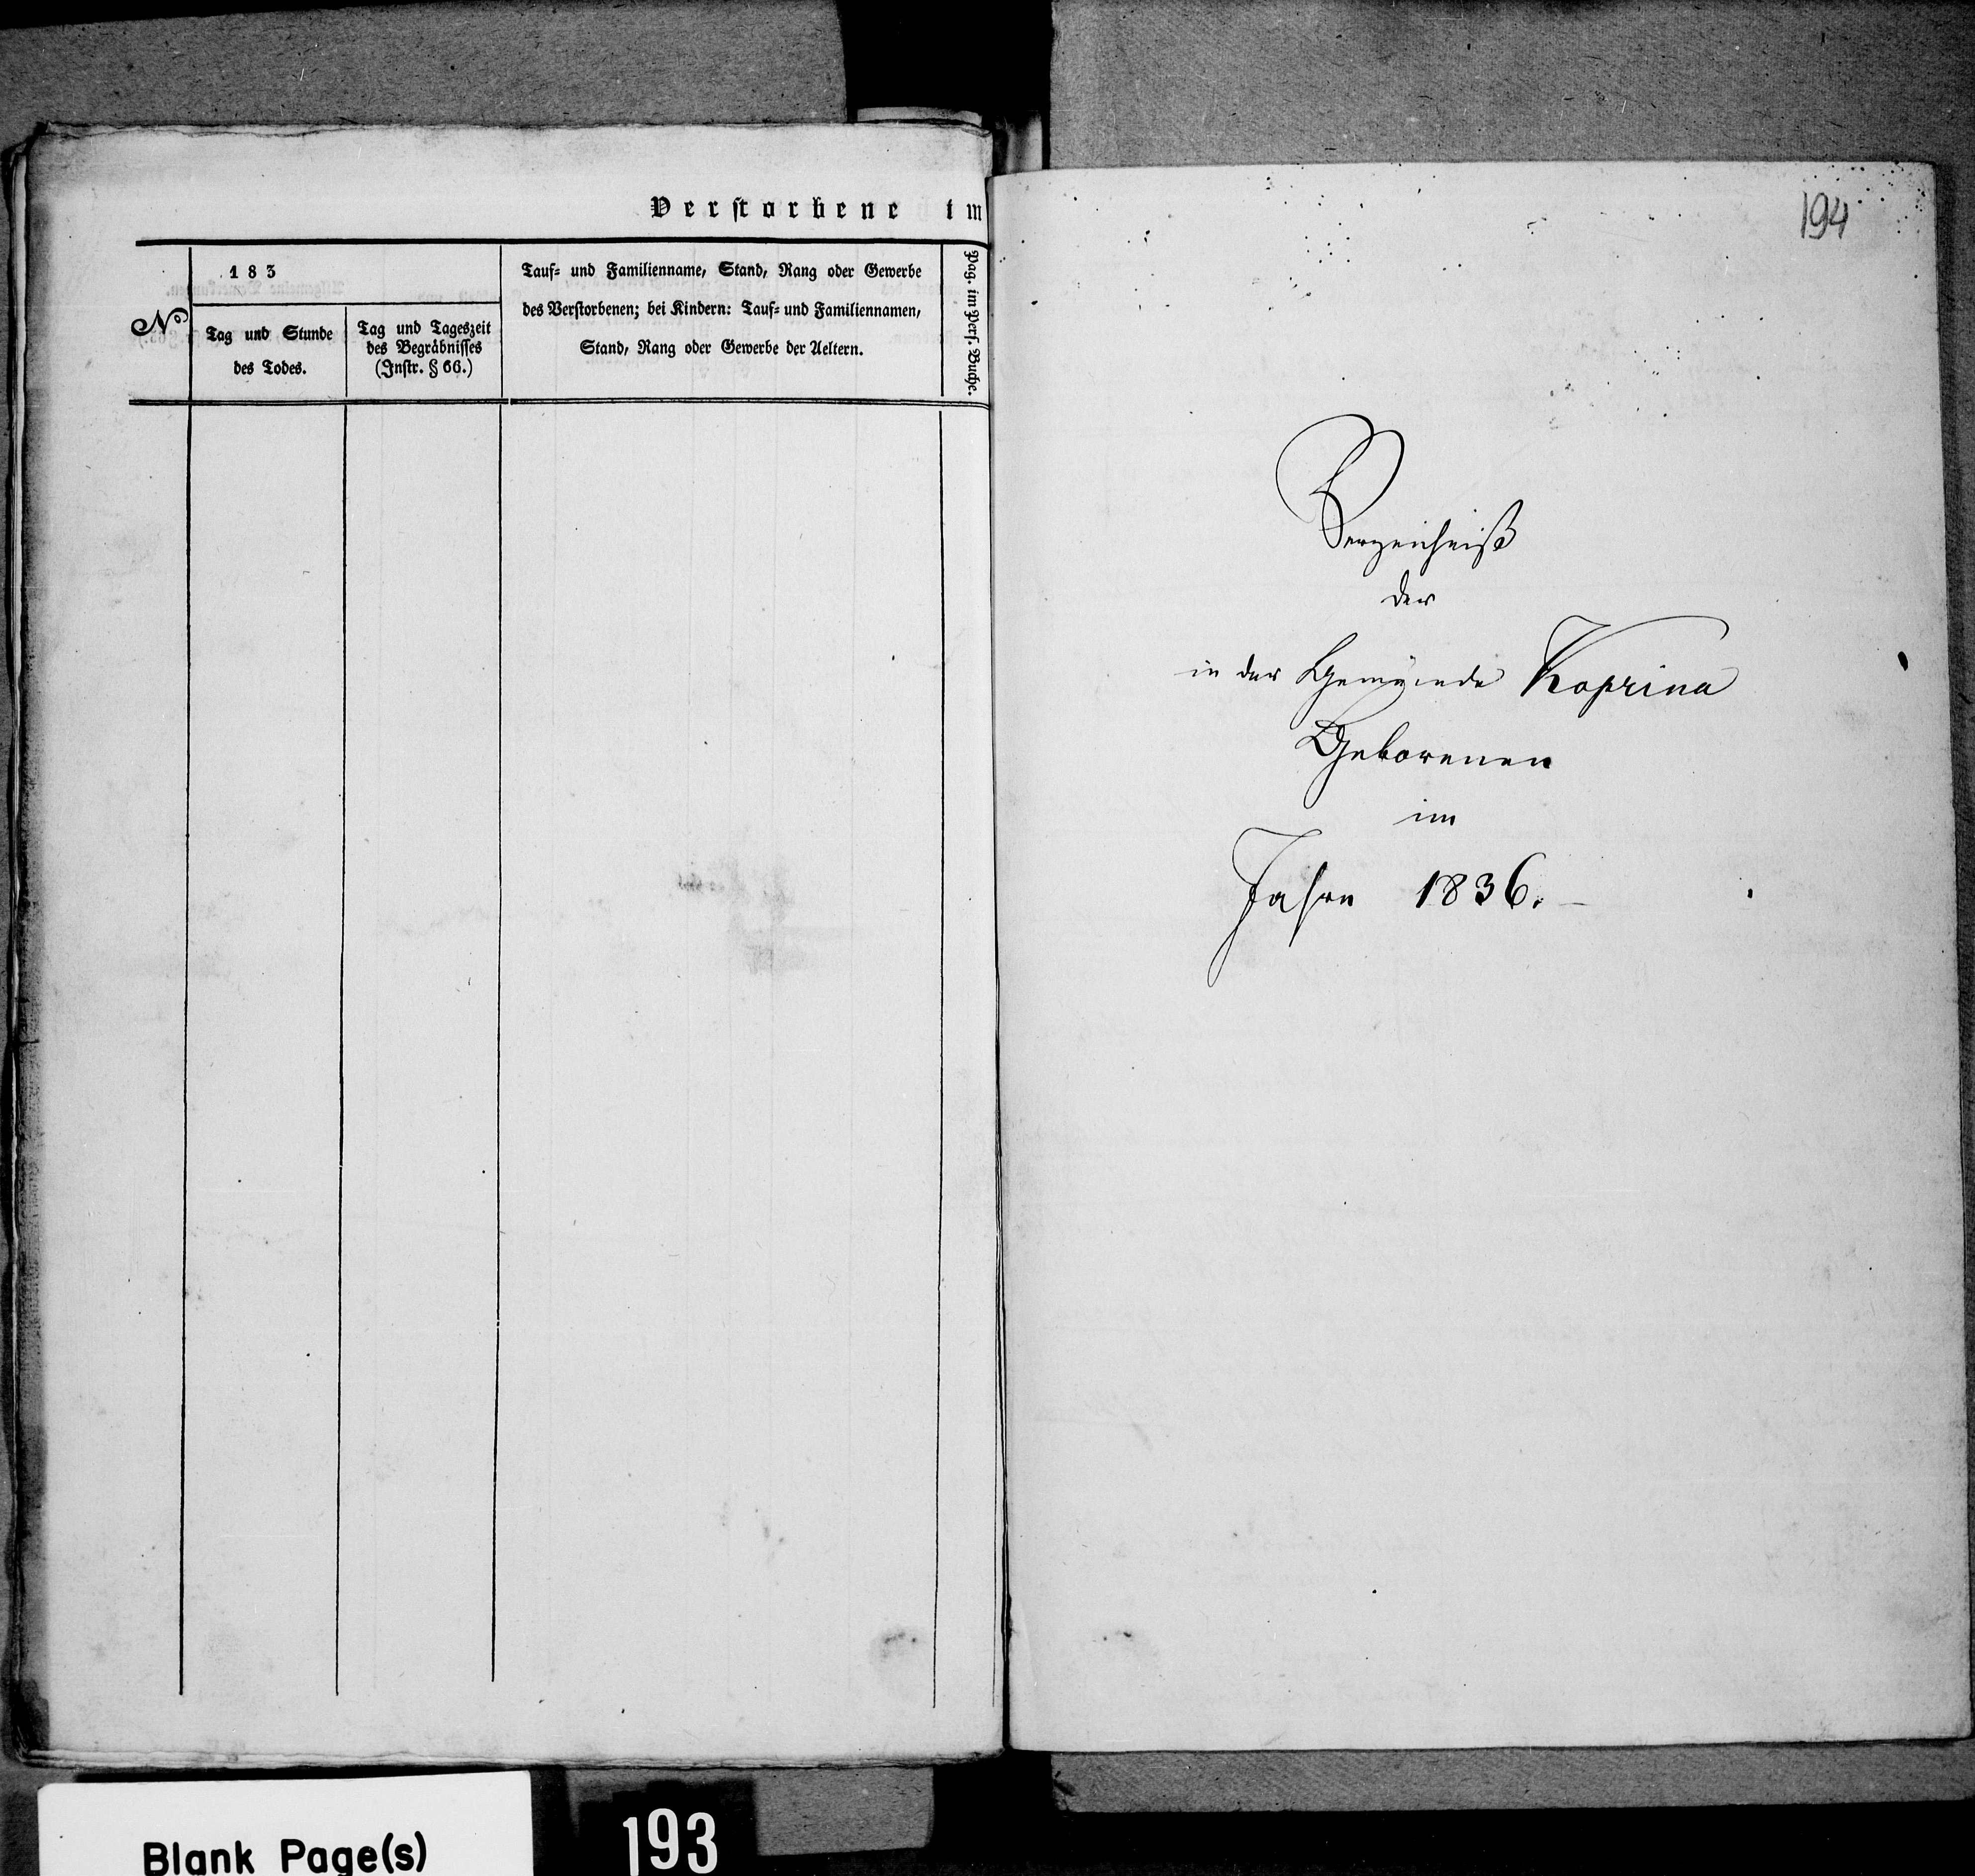 Verstorbene im
No
183
Tag und Stunde
des Todes.
Tag und Tageszeit
des Begräbnisses
(Instr. § 66.)
Tauf= und Familienname, Stand, Rang oder Gewerbe
des Verstorbenen; bei Kindern: Tauf= und Familiennamen,
Stand, Rang oder Gewerbe der Aeltern.
Pag. im Pers. Buche.
194
Verzeichniß
der
in der Gemeinde Koprina
Geborenen
im
Jahre 1836.
Blank Page(s)
193